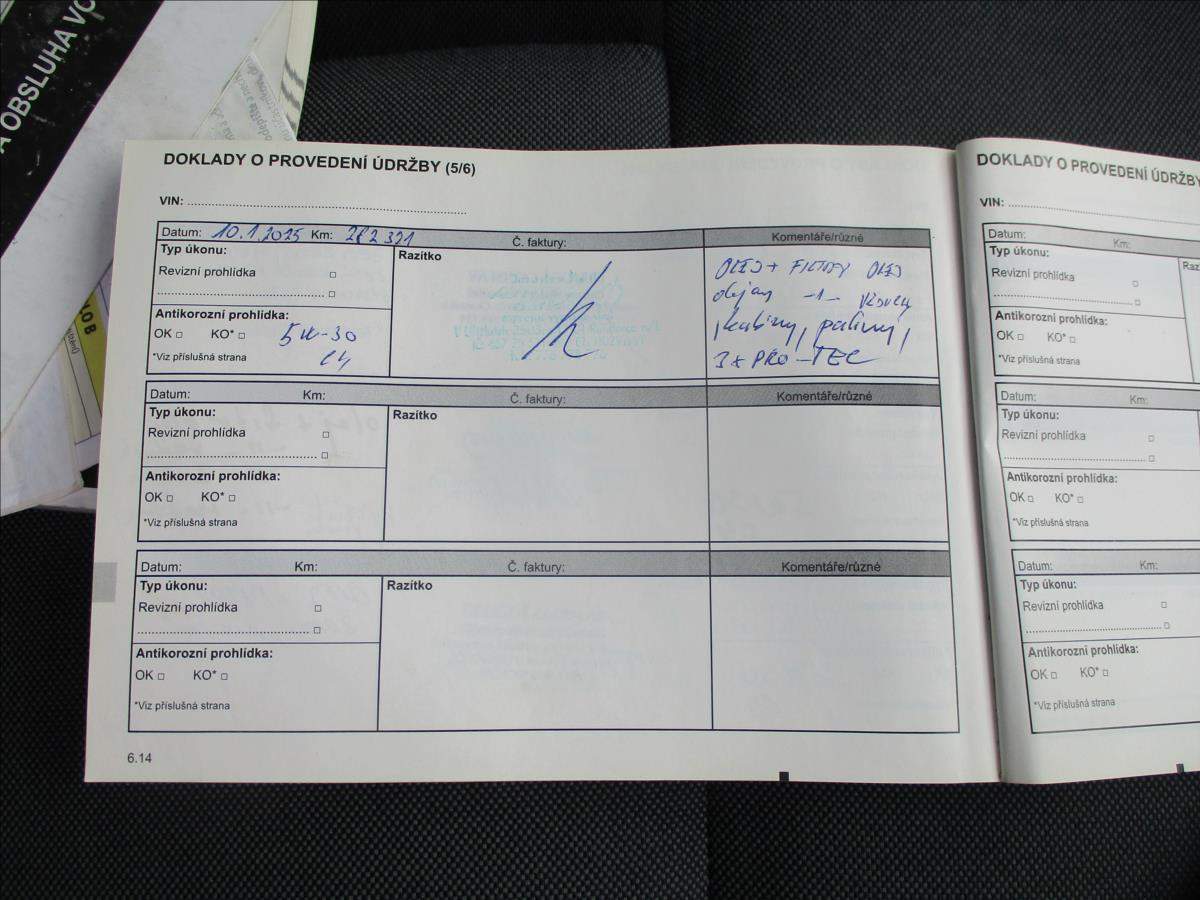 A OBSLUHA VO
DOKLADY O PROVEDENÍ ÚDRŽBY (5/6)
VIN:
Datum: 10.1.2025 Km: 282 321 Č. faktury: Komentáře/různé
Typ úkonu:
Razítko
Revizní prohlídka
OLEJ + FILTRY OLEJ
Antikorozní prohlídka:
OK KO*
5W-30
C4
*Viz příslušná strana
kabiny, palivy,
3x PRO-TEC
Datum: Km: Č. faktury: Komentáře/různé
Typ úkonu:
Razítko
Revizní prohlídka
Antikorozní prohlídka:
OK KO*
*Viz příslušná strana
Datum: Km: Č. faktury: Komentáře/různé
Typ úkonu:
Razítko
Revizní prohlídka
Antikorozní prohlídka:
OK KO*
*Viz příslušná strana
6.14
DOKLADY O PROVEDENÍ ÚDRŽBY
VIN:
Datum: Km:
Typ úkonu:
Raz
Revizní prohlídka
Antikorozní prohlídka:
OK KO*
*Viz příslušná strana
Datum: Km:
Typ úkonu:
Revizní prohlídka
Antikorozní prohlídka:
OK KO*
*Viz příslušná strana
Datum: Km:
Typ úkonu:
Revizní prohlídka
Antikorozní prohlídka:
OK KO*
*Viz příslušná strana